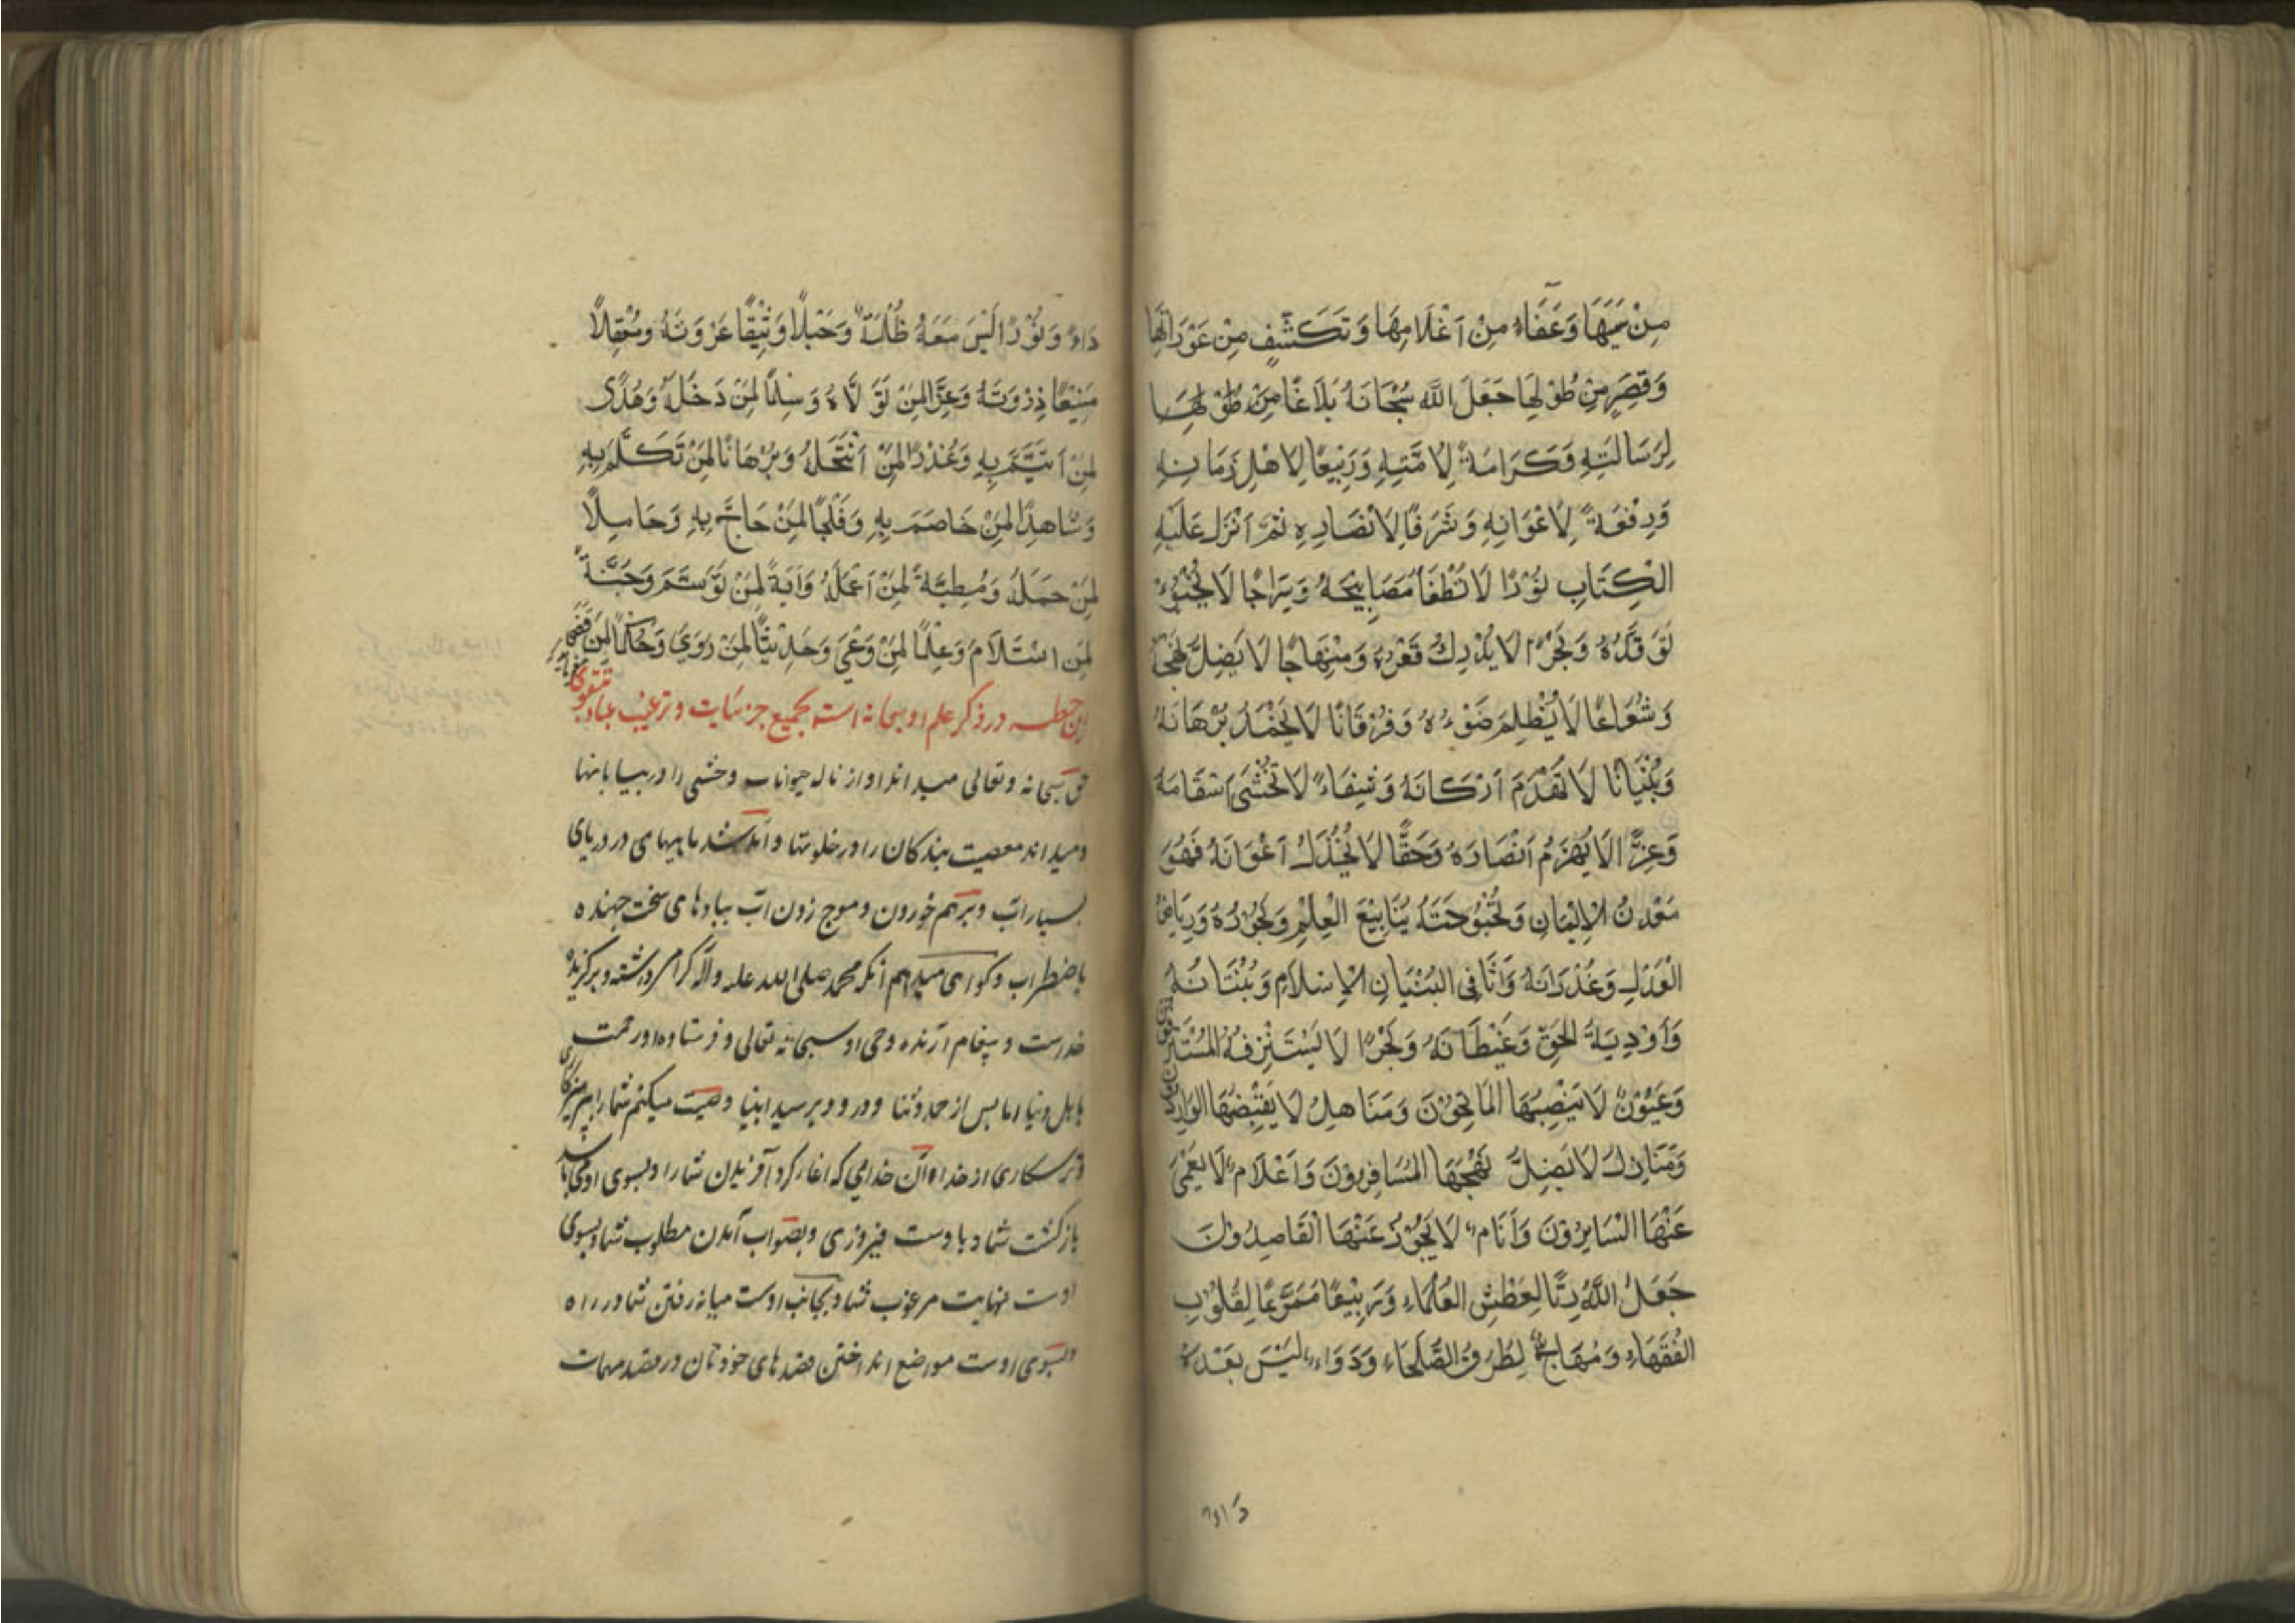 مِنْ سِمَتِهَا وَعَفَاءٍ مِنْ اَعْلَامِهَا وَتَكَشُّفٍ مِنْ عَوْرَاتِهَا
وَقِصَرٍ مِنْ طُوْلِهَا جَعَلَ اللَّه سُبْحَانَهُ بَلَاغًا مِنْ طُوْلِهَا
لِرَسَالَتِهِ وَكَرَامَةً لِاُمَّتِهِ وَرَبِيْعًا لِاَهْلِ زَمَانِهِ
وَرِفْعَةً لِاَعْوَانِهِ وَشَرَفًا لِاَنْصَارِهِ ثُمَّ اَنْزَلَ عَلَيْهِ
الْكِتَابِ نُوْرًا لَا تُطْفَأُ مَصَابِيْحَهُ وَسِرَاجًا لَا يَخْبُوُ
تَوَقُّدُهُ وَبَحْرًا لَا يُدْرِكُ قَعْرُهُ وَمِنْهَاجًا لَا يَضِلُّ نَهْجُهُ
وَشُعَاعًا لَا يُظْلِمُ ضَوْءُهُ وَفُرْقَانًا لَا يَخْمَدُ بُرْهَانَهُ
وَبُنْيَانًا لَا تُهْدَمَ اَرْكَانَهُ وَشِفَاءً لَا تُخْشَىٰ سَقَامَهُ
وَعِزًّا لَا يُهْزَمُ اَنْصَارَهُ وَحَقًّا لَا يُخْذَلُ اَعْوَانَهُ فَهُوَ
مَعْدِنُ الْاِيْمَانِ وَبُحْبُوْحَتَهُ يَنَابِيْعَ الْعِلْمِ وَبُحُوْرُهُ وَرِيَاضُ
الْعَدْلِ وَغُدْرَانَهُ وَاَثَافِى البُنْيَانِ الْاِسْلَامِ وَبُنْيَانُهُ
وَاَوْدِيَةُ الْحَقِّ وَغَيْطَانَهُ وَبَحْرًا لَا يَسْتَنْزِفُهُ الْمُسْتَنْزِفُوْنَ
وَعُيُوْنٌ لَا يَنْضِبُهَا الْمَاتِحُوْنَ وَمَنَاهِلُ لَا يَغِيْضُهَا الْوَارِدُوْنَ
وَمَنَازِلُ لَا يَضِلُّ نَهْجَهَا الْمُسَافِرُوْنَ وَاَعْلَامٌ لَا يَعْمٰى
عَنْهَا السَّايِرُوْنَ وَاٰكَامٌ لَا يَجُوْزُ عَنْهَا الْقَاصِدُوْنَ
جَعَلَ اللّٰهُ رِيًّا لِعَطْشِ الْعُلَمَاءِ وَرَبِيْعًا مُمَرَّعًا لِقُلُوْبِ
الْفُقَهَاءِ وَمُهَاجٌ لِطُرُقِ الصُّلَحَاءِ وَدَوَاءً لَيْسَ بَعْدَهُ
دَاءٌ
دَاءٌ وَنُوْرًا لَيْسَ مَعَهُ ظُلْمَةٌ وَحَبْلًا وَثِيْقًا عُرْوَتَهُ وَمَعْقِلًا
مَنِيْعًا ذِرْوَتَهُ وَعِزًّا لِمَنْ تَوَلَّاهُ وَسِلْمًا لِمَنْ دَخَلَهُ وَهُدًى
لِمَنْ اِئْتَمَّ بِهِ وَعُذْرًا لِمَنْ انْتَحَلَهُ وَبُرْهَانًا لِمَنْ تَكَلَّمَ بِهِ
وَشَاهِدًا لِمَنْ خَاصَمَ بِهِ وَفَلْجًا لِمَنْ حَاجَّ بِهِ وَحَامِلًا
لِمَنْ حَمَلَهُ وَمُطِيَّةً لِمَنْ اَعْمَلَهُ وَآيَةً لِمَنْ تَوَسَّمَ وَجُنَّةً
لِمَنِ اسْتَلَامَ وَعِلْمًا لِمَنْ وَعٰى وَحَدِيْثًا لِمَنْ رَوَىٰ وَحُكْمًا لِمَنْ قَضٰى
اين خطبه در ذكر علم او سبحانه است بجميع جزئيات و ترغيب عباد بتقوى
حق سبحانه وتعالى ميداند اواز ناله حيوانات وحشى را در بيابانها
وميداند معصيت بندكان را در خلوتها و آمد شد ماهيهاى در درياى
بسيار اب و برهم خوردن و موج زدن اب ببادهاى سخت جهنده
باضطراب وكواهى ميدهم انكه محمد صلى الله عليه وآله كرامى داشته و بركزيده
خداست و پيغام آرنده وحى او سبحانه تعالى و فرستاده او رحمت
باهل دنيا اما پس از حمد و ثنا و درود بر سيد انبيا وصيت ميكنم شما را بپرهيزكارى
و ترسكارى از خدا آن خدايى كه اغاز كرد آفريدن شما را و بسوى اوست باشد
بازكشت شما و باوست فيروزى و بصواب آمدن مطلوب شما و بسوى
اوست نهايت مرغوب شما و بجانب اوست ميانه رفتن شما در راه
و بسوى اوست مواضع انداختن قصدهاى خودتان در قصد مهمات